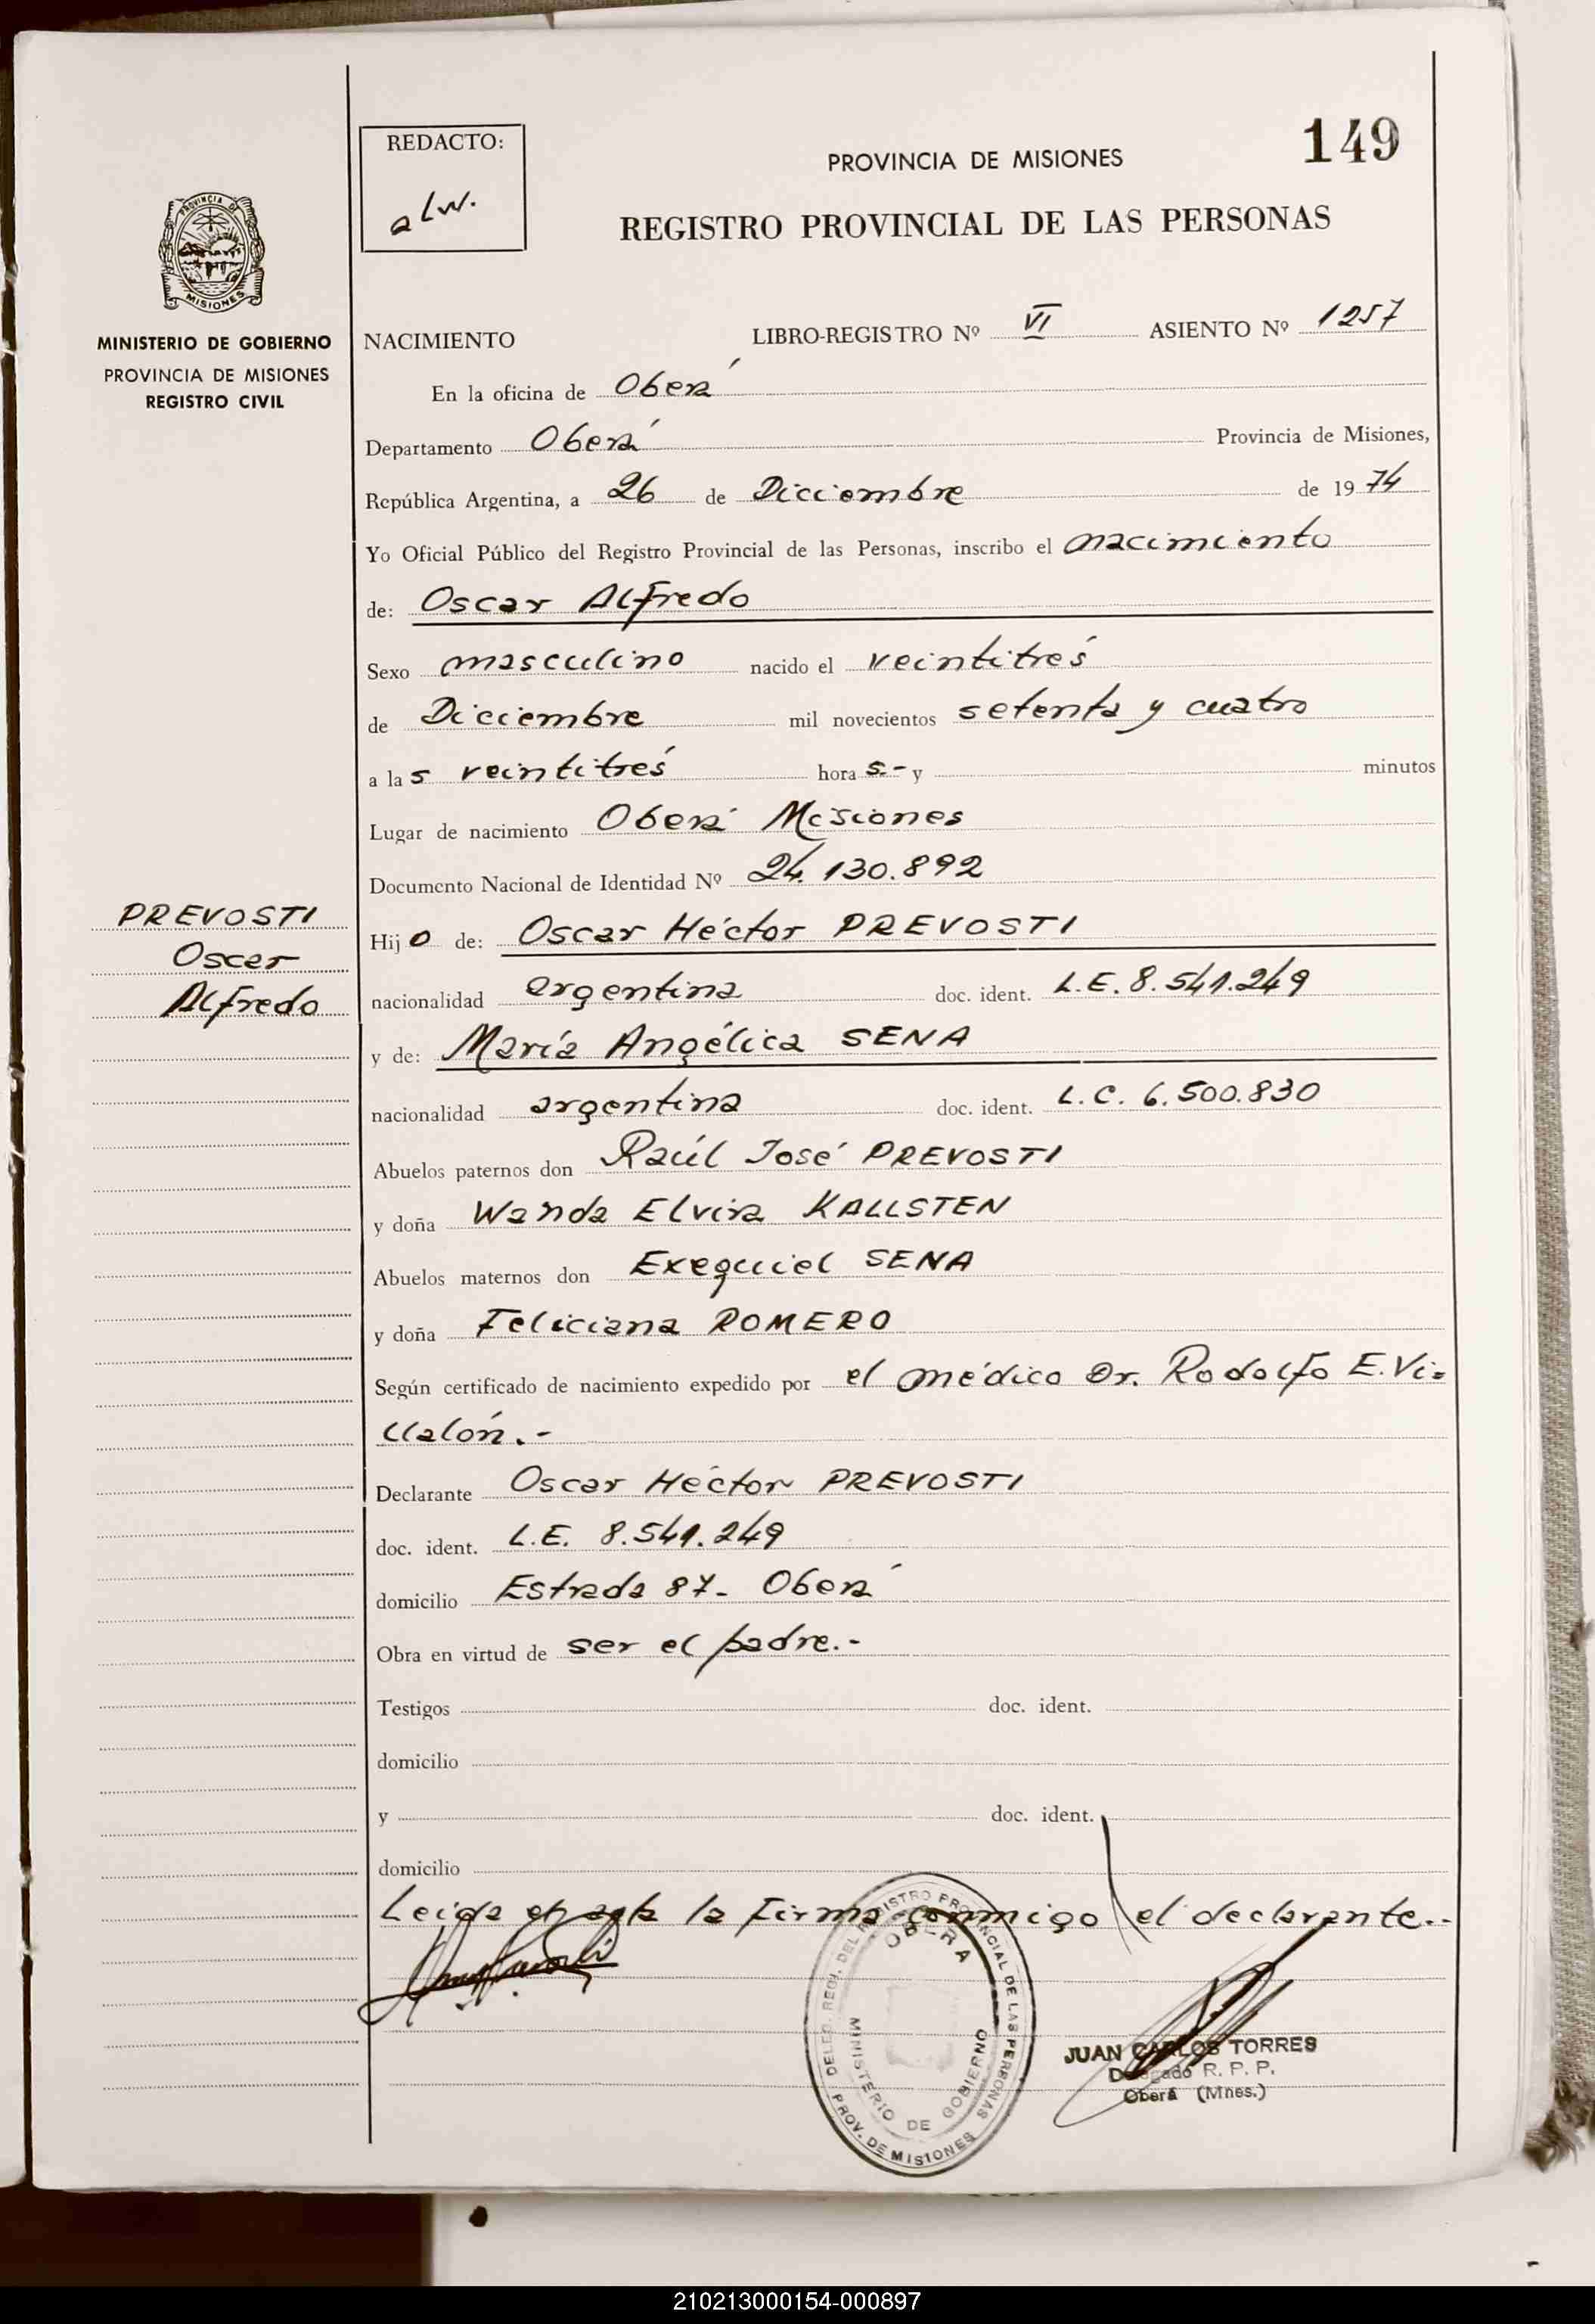 149
REDACTO:
aLW.
PROVINCIA DE MISIONES
REGISTRO PROVINCIAL DE LAS PERSONAS
PROVINCIA DE
MISIONES
MINISTERIO DE GOBIERNO
PROVINCIA DE MISIONES
REGISTRO CIVIL
NACIMIENTO LIBRO-REGISTRO Nº VI ASIENTO Nº 1257
En la oficina de Oberá
Departamento Oberá Provincia de Misiones,
República Argentina, a 26 de Diciembre de 1974
Yo Oficial Público del Registro Provincial de las Personas, inscribo el nacimiento
de: Oscar Alfredo
Sexo masculino nacido el veintitrés
de Diciembre mil novecientos setenta y cuatro
a las veintitrés horas.- y minutos
Lugar de nacimiento Oberá Misiones
Documento Nacional de Identidad Nº 24.130.892
PREVOSTI
Oscar
Alfredo
Hijo de: Oscar Héctor PREVOSTI
nacionalidad argentina doc. ident. L.E. 8.541.249
y de: María Angélica SENA
nacionalidad argentina doc. ident. L.C. 6.500.830
Abuelos paternos don Raúl José PREVOSTI
y doña Wanda Elvira KALLSTEN
Abuelos maternos don Exequiel SENA
y doña Feliciana ROMERO
Según certificado de nacimiento expedido por el médico Dr. Rodolfo E. Vi=
llalón.-
Declarante Oscar Héctor PREVOSTI
doc. ident. L.E. 8.541.249
domicilio Estrada 87- Oberá
Obra en virtud de ser el padre.-
Testigos doc. ident.
domicilio
y doc. ident.
domicilio
Leida el acta la firma conmigo el declarante.-
DELEG. REGI. DEL REGISTRO PROVINCIAL DE LAS PERSONAS
OBERA
MINISTERIO DE GOBIERNO
PROV. DE MISIONES
JUAN CARLOS TORRES
Delegado R. P. P.
Oberá (Mnes.)
210213000154-000897